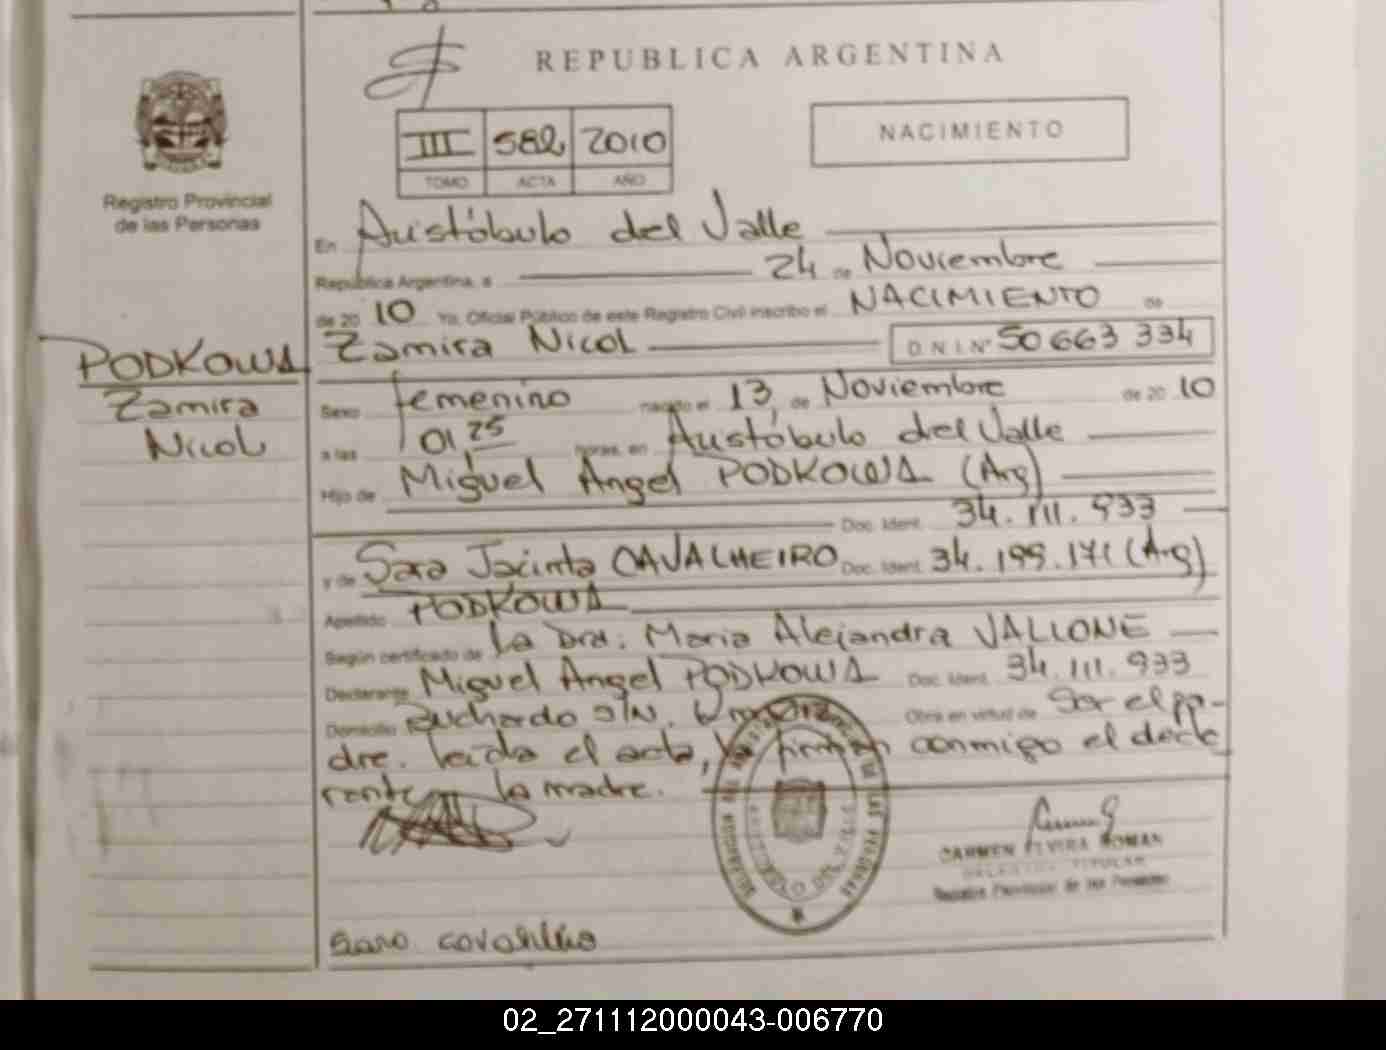 REPUBLICA ARGENTINA
III 582 2010
TOMO ACTA AÑO
NACIMIENTO
Registro Provincial
de las Personas
En Aristóbulo del Valle
República Argentina, a 24 de Noviembre
de 20 10 Yo, Oficial Público de este Registro Civil inscribo el NACIMIENTO de
Zamira Nicol D.N.I. Nº 50 663 334
PODKOWA
Zamira
Nicol
Sexo femenino nacido el 13, de Noviembre de 20 10
a las 01,25 horas, en Aristóbulo del Valle
Hijo de Miguel Angel PODKOWA (Arg)
Doc. Ident. 34.111.933
y de Sara Jacinta CAVALHEIRO Doc. Ident. 34.199.171 (Arg)
Apellido PODKOWA
Según certificado de La Dra. Maria Alejandra VALLONE
Declarante Miguel Angel PODKOWA Doc. Ident. 34.111.933
Domicilio Buchardo S/N. Obra en virtud de Ser el pa-
dre. Leída el acta, la firman conmigo el decla
rante la madre.
CARMEN ELVIRA ROMAN
DELEGADA TITULAR
Registro Provincial de las Personas
02_271112000043-006770